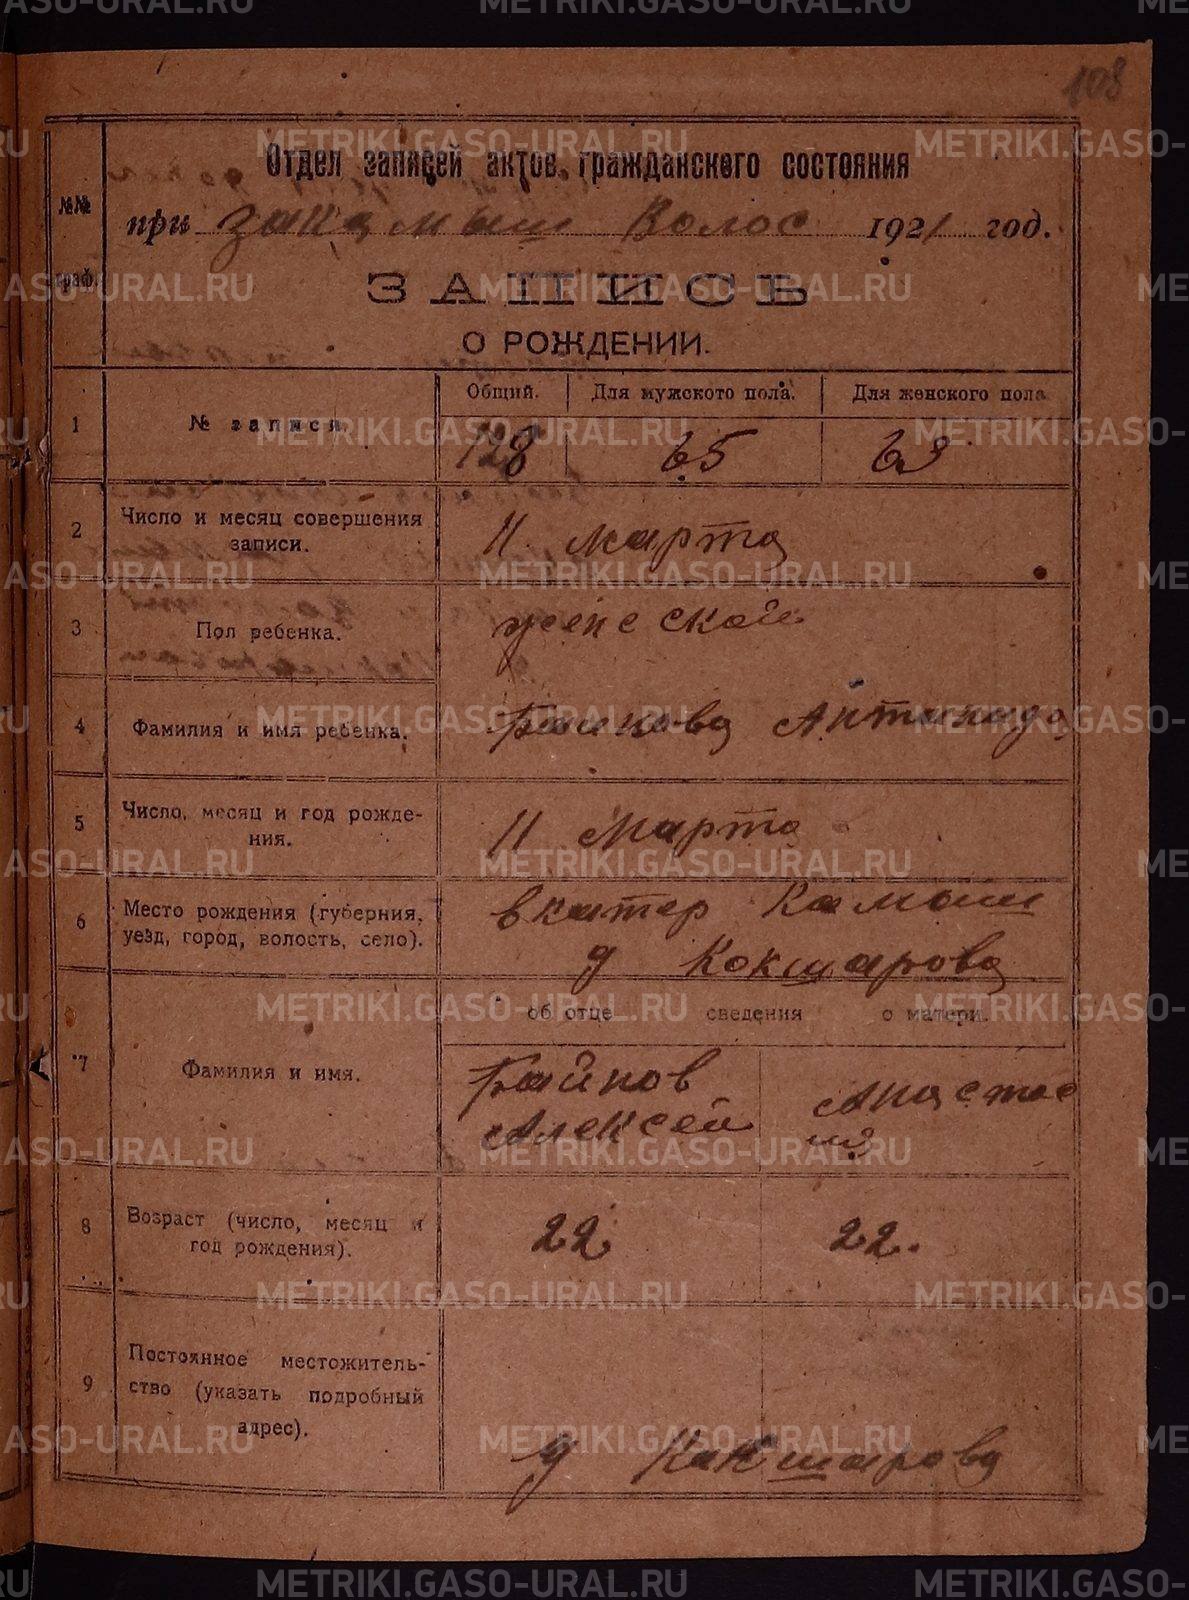 108
Отдел записей актов гражданского состояния
№№ граф.
при Закамыш Волос 1921 год.
ЗАПИСЬ
О РОЖДЕНИИ.
Общий. Для мужского пола. Для женского пола
1 № записи. 128 65 63
2 Число и месяц совершения записи. 11 марта
3 Пол ребенка. женской
4 Фамилия и имя ребенка.
5 Число, месяц и год рожде-
ния. 11 Марта
6 Место рождения (губерния, вкатер Камыш
уезд, город, волость, село). д Кокшарова
об отце сведения о матери.
7 Фамилия и имя. Байнов Анастас
Алексей ия
8 Возраст (число, месяц и 22 22.
год рождения).
9 Постоянное местожитель-
ство (указать подробный
адрес). д Какшарова
METRIKI.GASO-URAL.RU